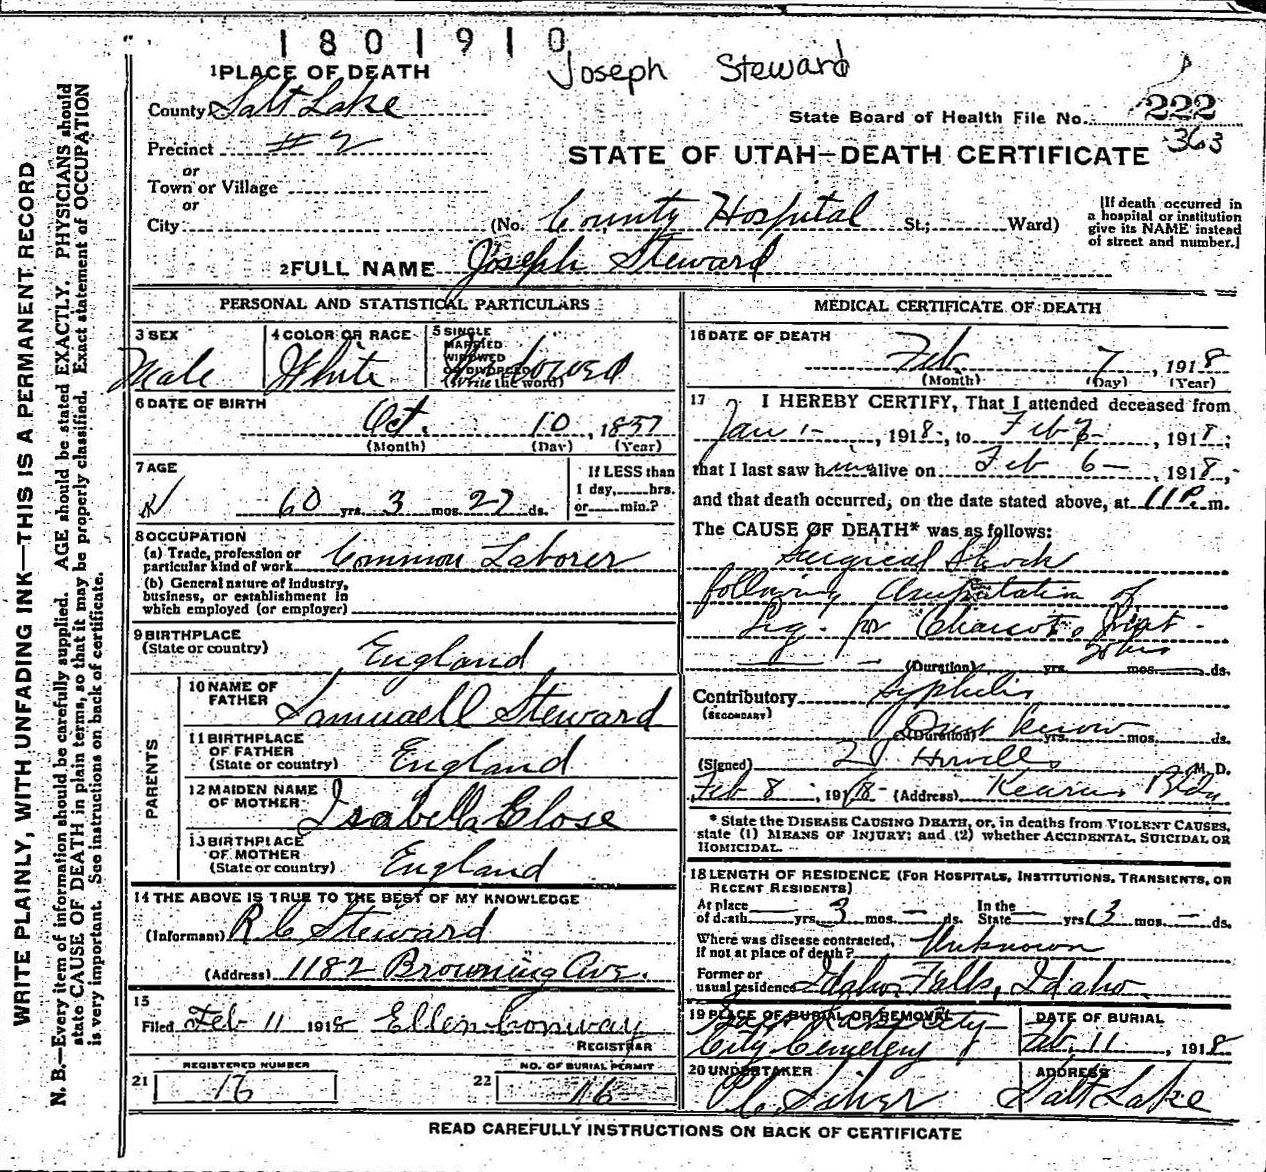 1801910
Joseph Steward
1 PLACE OF DEATH
County Salt Lake
State Board of Health File No. 222
363
Precinct #2
STATE OF UTAH—DEATH CERTIFICATE
or
Town or Village
or
City
(No. County Hospital St.; Ward)
[If death occurred in
a hospital or institution
give its NAME instead
of street and number.]
2 FULL NAME Joseph Steward
PERSONAL AND STATISTICAL PARTICULARS
3 SEX
Male
4 COLOR OR RACE
White
5 SINGLE
MARRIED
WIDOWED
OR DIVORCED
(Write the word)
Widowed
6 DATE OF BIRTH
Oct. 10, 1857
(Month) (Day) (Year)
7 AGE
60 yrs. 3 mos. 27 ds.
If LESS than
1 day, hrs.
or min.?
8 OCCUPATION
(a) Trade, profession or
particular kind of work Common Laborer
(b) General nature of industry,
business, or establishment in
which employed (or employer)
9 BIRTHPLACE
(State or country) England
PARENTS
10 NAME OF
FATHER Samuaell Steward
11 BIRTHPLACE
OF FATHER
(State or country) England
12 MAIDEN NAME
OF MOTHER Isabella Close
13 BIRTHPLACE
OF MOTHER
(State or country) England
14 THE ABOVE IS TRUE TO THE BEST OF MY KNOWLEDGE
(Informant) R C Steward
(Address) 1182 Browning Ave.
15
Filed Feb 11 1918 Ellen Conway
REGISTRAR
REGISTERED NUMBER
21 16
NO. OF BURIAL PERMIT
22 16
MEDICAL CERTIFICATE OF DEATH
16 DATE OF DEATH
Feb. 7, 1918
(Month) (Day) (Year)
17 I HEREBY CERTIFY, That I attended deceased from
Jan 1-, 1918, to Feb 7-, 1918;
that I last saw him alive on Feb 6-, 1918,
and that death occurred, on the date stated above, at 11 P. m.
The CAUSE OF DEATH* was as follows:
Surgical Shock
following Amputation of
Leg. for Charcot's Joint.
(Duration) yrs. mos. ds.
Contributory Syphilis
(SECONDARY)
Dont know
(Duration) yrs. mos. ds.
(Signed) Howells M. D.
Feb 8, 1918 (Address) Kearns Bldg
* State the DISEASE CAUSING DEATH, or, in deaths from VIOLENT CAUSES,
state (1) MEANS OF INJURY; and (2) whether ACCIDENTAL, SUICIDAL OR
HOMICIDAL.
18 LENGTH OF RESIDENCE (FOR HOSPITALS, INSTITUTIONS, TRANSIENTS, OR
RECENT RESIDENTS)
At place
of death — yrs. 3 mos. — ds.
In the
State — yrs. 3 mos. — ds.
Where was disease contracted,
if not at place of death? Unknown
Former or
usual residence Idaho Falls, Idaho
19 PLACE OF BURIAL OR REMOVAL
City Cemetery
DATE OF BURIAL
Feb. 11, 1918
20 UNDERTAKER
Silver
ADDRESS
Salt Lake
READ CAREFULLY INSTRUCTIONS ON BACK OF CERTIFICATE
WRITE PLAINLY, WITH UNFADING INK—THIS IS A PERMANENT RECORD
N. B.—Every item of information should be carefully supplied. AGE should be stated EXACTLY. PHYSICIANS should
state CAUSE OF DEATH in plain terms, so that it may be properly classified. Exact statement of OCCUPATION
is very important. See instructions on back of certificate.